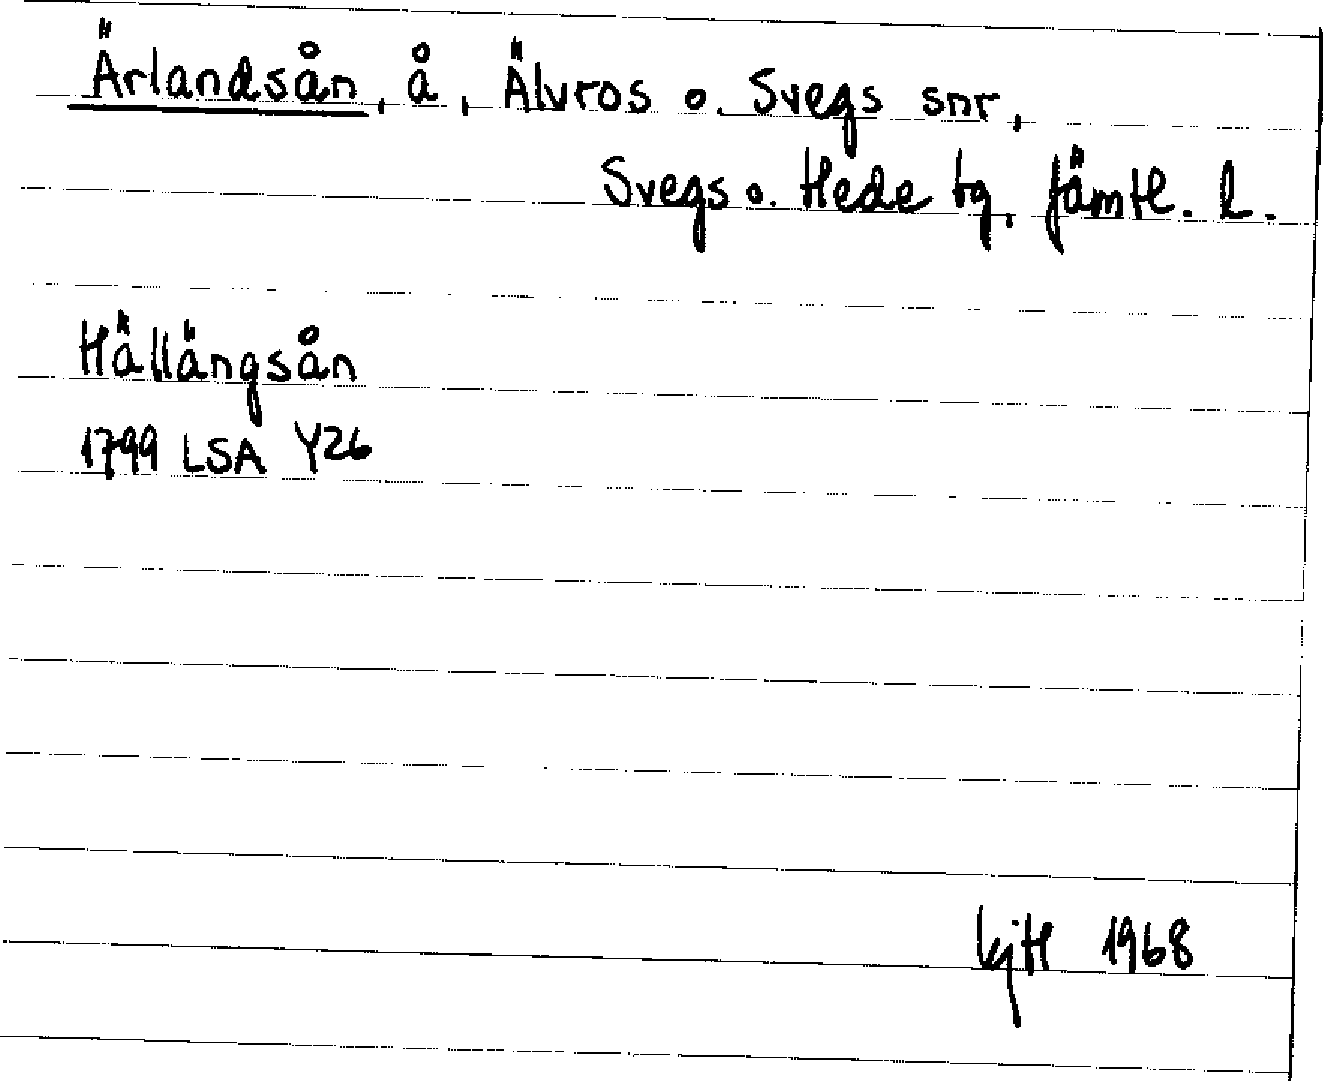 Ärlandsån, å, Älvros o. Svegs snr,
Svegs o. Hede tg, Jämtl. l.
Hällängsån
1799 LSA Y26
kjH 1968